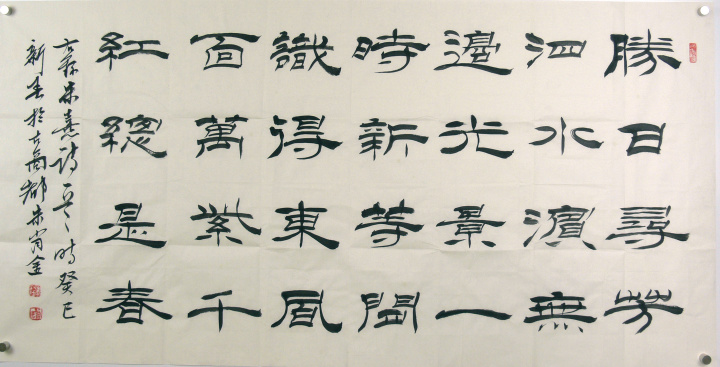 勝日尋芳
泗水濱無
邊光景一
時新等閒
識得東風
面萬紫千
紅總是春
朱熹詩一首時癸巳
新春於古商都朱肖金